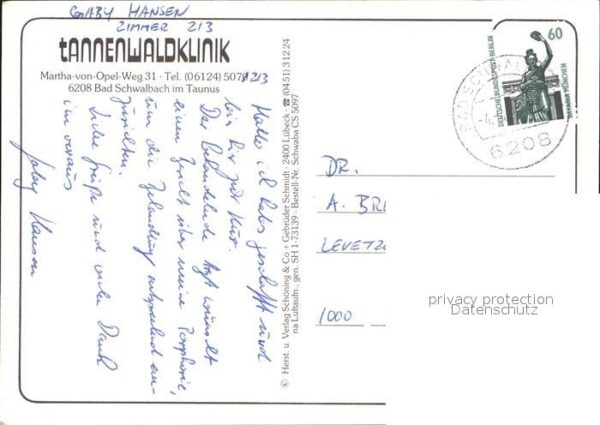 GABY HANSEN
ZIMMER 213
TANNENWALDKLINIK
Martha-von-Opel-Weg 31 · Tel. (06124) 507/213
6208 Bad Schwalbach im Taunus
Hallo ich habe geschafft und
bin hier zur Kur.
Der behandelnde Arzt wünscht
einen Bericht über meine Porphyrie,
um die Behandlung entsprechend ein-
zuleiten.
Liebe Grüße und vielen Dank
im voraus
Gaby Hansen
© Herst. u. Verlag Schöning & Co + Gebrüder Schmidt · 2400 Lübeck · ☎ (04 51) 3 12 24
na Luftaufn., gen. SH 1-73139 · Bestell-Nr. Schwaba CS 5097
60
DEUTSCHE BUNDESPOST BERLIN
BAVARIA MÜNCHEN
BAD SCHWALBACH
6208
DR.
A. BR
LEVETZ
1000
privacy protection
Datenschutz